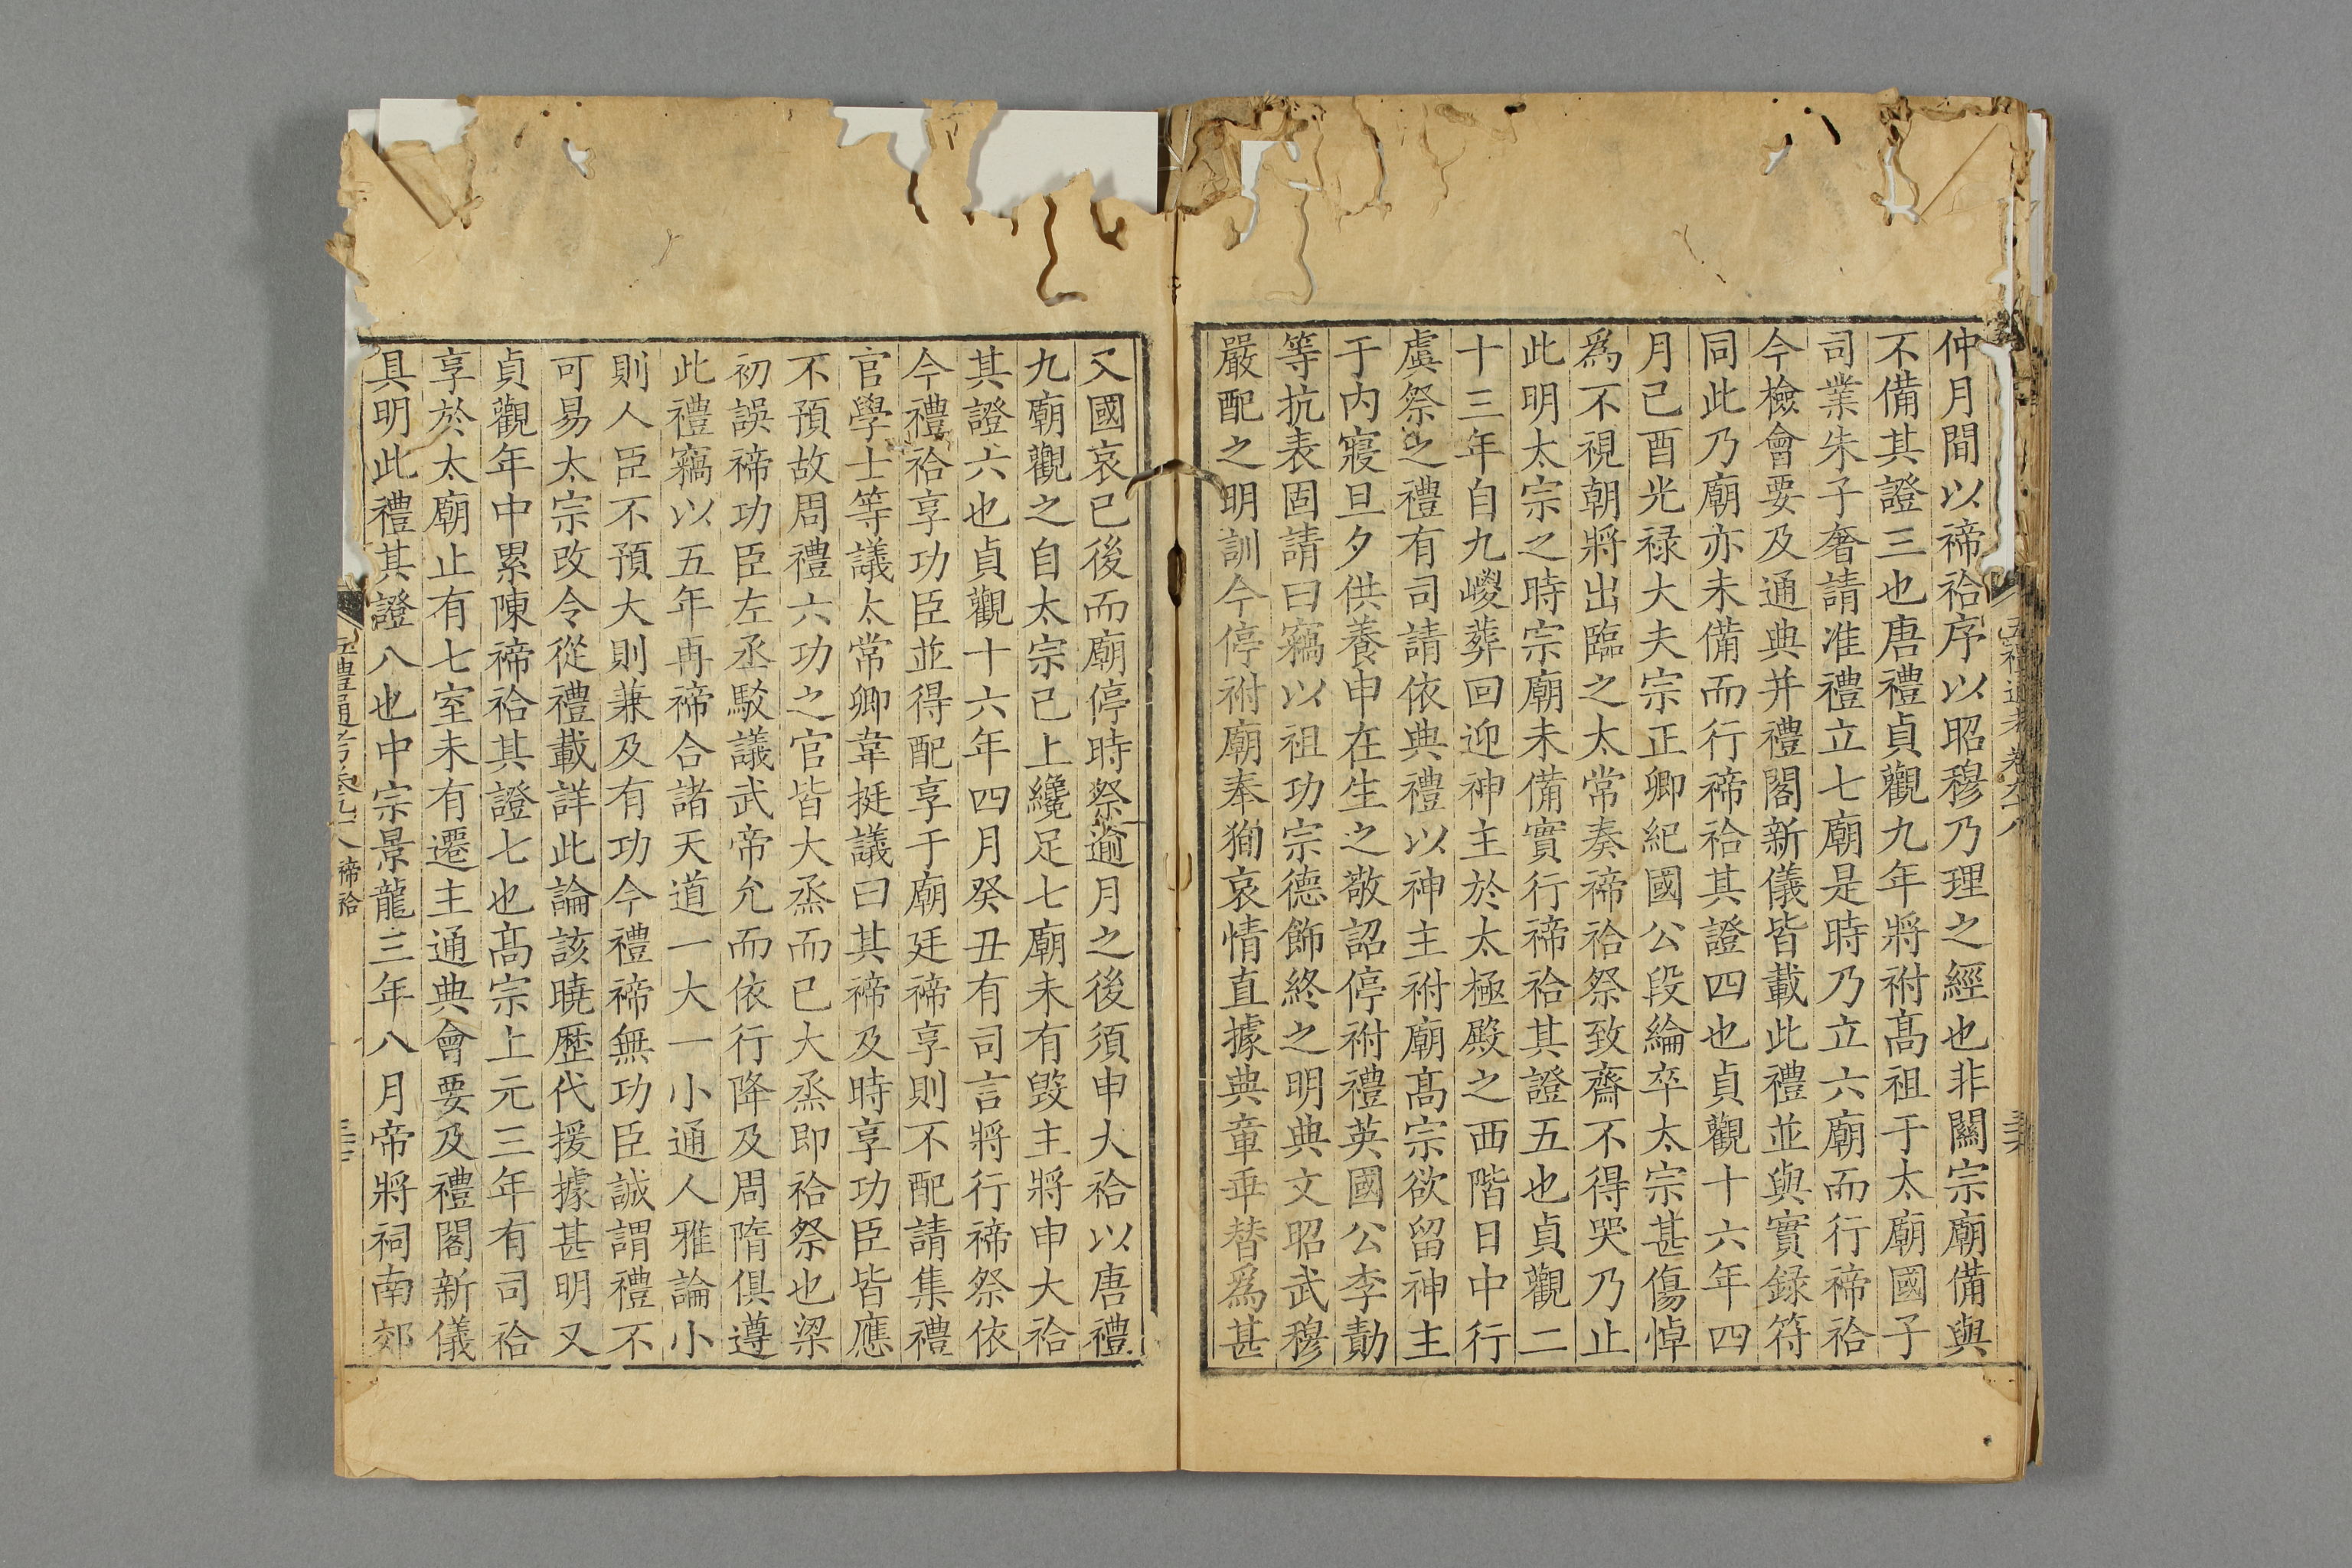 五禮通考 卷九十八
仲月間以禘祫序以昭穆乃理之經也非關宗廟備與
不備其證三也唐禮貞觀九年將祔髙祖于太廟國子
司業朱子奢請准禮立七廟是時乃立六廟而行禘祫
今檢會要及通典并禮閣新儀皆載此禮並與實録符
同此乃廟亦未備而行禘祫其證四也貞觀十六年四
月己酉光禄大夫宗正卿紀國公段綸卒太宗甚傷悼
爲不視朝將出臨之太常奏禘祫祭致齋不得哭乃止
此明太宗之時宗廟未備實行禘祫其證五也貞觀二
十三年自九嵕葬回迎神主於太極殿之西階日中行
虞祭之禮有司請依典禮以神主祔廟髙宗欲留神主
于内寢旦夕供養申在生之敬詔停祔禮英國公李勣
等抗表固請曰竊以祖功宗德飾終之明典文昭武穆
嚴配之明訓今停祔廟奉狥哀情直據典章乖替爲甚
又國哀已後而廟停時祭逾月之後須申大祫以唐禮
九廟觀之自太宗已上纔足七廟未有毀主將申大祫
其證六也貞觀十六年四月癸丑有司言將行禘祭依
今禮祫享功臣並得配享于廟廷禘享則不配請集禮
官學士等議太常卿韋挺議曰其禘及時享功臣皆應
不預故周禮六功之官皆大烝而已大烝即祫祭也梁
初誤禘功臣左丞駁議武帝允而依行降及周隋俱遵
此禮竊以五年再禘合諸天道一大一小通人雅論小
則人臣不預大則兼及有功今禮禘無功臣誠謂禮不
可易太宗改令從禮載詳此論該曉歷代援據甚明又
貞觀年中累陳禘祫其證七也髙宗上元三年有司祫
享於太廟止有七室未有遷主通典會要及禮閣新儀
具明此禮其證八也中宗景龍三年八月帝將祠南郊
五禮通考卷九十八 禘祫